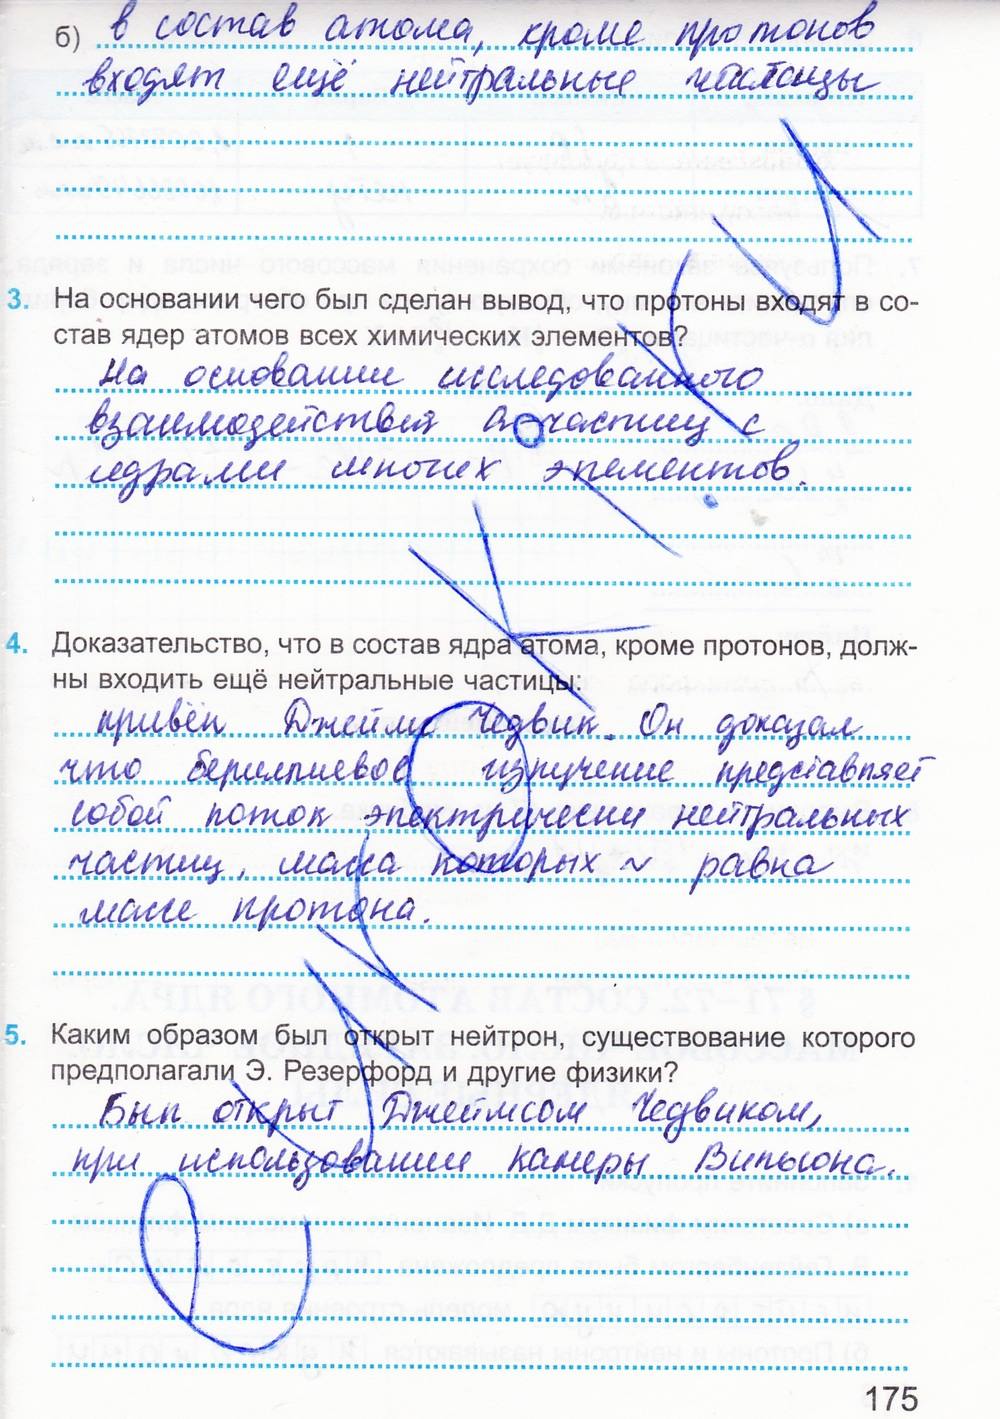 б) в состав атома, кроме протонов
входят ещё нейтральные частицы
3. На основании чего был сделан вывод, что протоны входят в со-
став ядер атомов всех химических элементов?
На основании исследованного
взаимодействия α-частиц с
ядрами многих элементов.
4. Доказательство, что в состав ядра атома, кроме протонов, долж-
ны входить ещё нейтральные частицы:
привёл Джеймс Чедвик. Он доказал
что бериллиевое излучение представляет
собой поток электрически нейтральных
частиц, масса которых ~ равна
массе протона.
5. Каким образом был открыт нейтрон, существование которого
предполагали Э. Резерфорд и другие физики?
Был открыт Джеймсом Чедвиком,
при использовании камеры Вильсона.
175